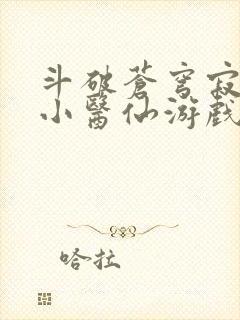 斗破蒼穹寂
小醫仙游戲
哈拉